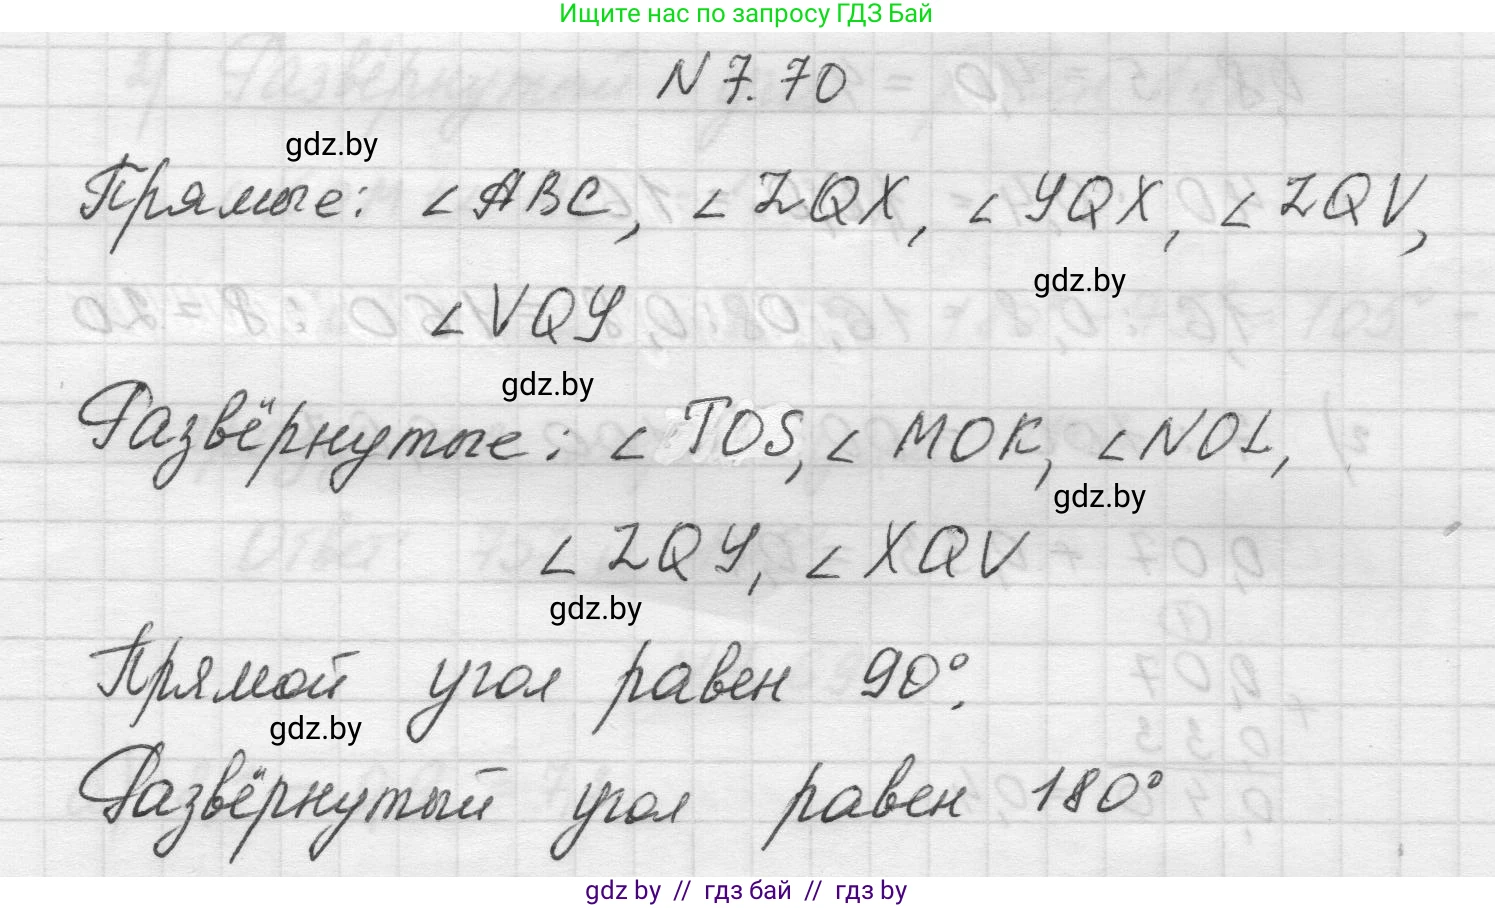 Ищите нас по запросу ГДЗ Бай
N 7.70
gdz.by
Прямые: ∠ABC, ∠ZQX, ∠YQX, ∠ZQV,
gdz.by
∠VQY
gdz.by
Развёрнутые: ∠TOS, ∠MOK, ∠NOL,
gdz.by
∠ZQY, ∠XQV
gdz.by
Прямой угол равен 90°.
gdz.by
Развёрнутый угол равен 180°
gdz by // гдз бай // гдз by